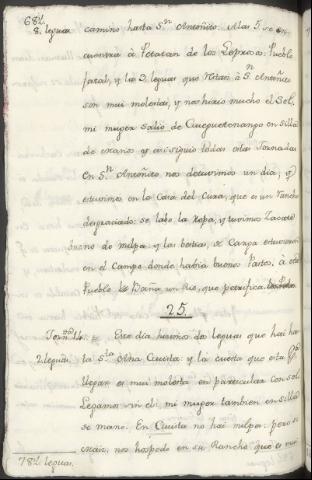 682.
8. leguas camino hasta S.n Antoñito. A las 5. se en
cuentra à Petatan de los Leprosos. Pueblo
fatal, y las 3. leguas que restan à S.n Antoñito
son mui molestas, y nos hirio mucho el Sol,
mi muger salio de Gueguetenango en silla
de mano y asi siguio todas estas Jornadas
En S.n Antoñito nos detuvimos un dia, y
estuvimos en la Casa del Cura, que es un Rancho
desgraciado: se labo la ropa, y tuvimos Zacate
bueno de milpa y las bestias, de Carga estuvieron
en el Campo donde habia buenos Pastos. à este
Pueblo le Baña un Rio, que
25.
Jorn.da 14. Este dia hisimos de leguas que hai ha
2 leguas. ta S.ta Ana Cuista: y la cuesta que esta p.a
llegar es mui molesta en particular con sol.
Legamos mi muger tambien en silla
de mano. En Cuista no hai milpa; pero se
nos hospedo en su Rancho que es mui
782 leguas.